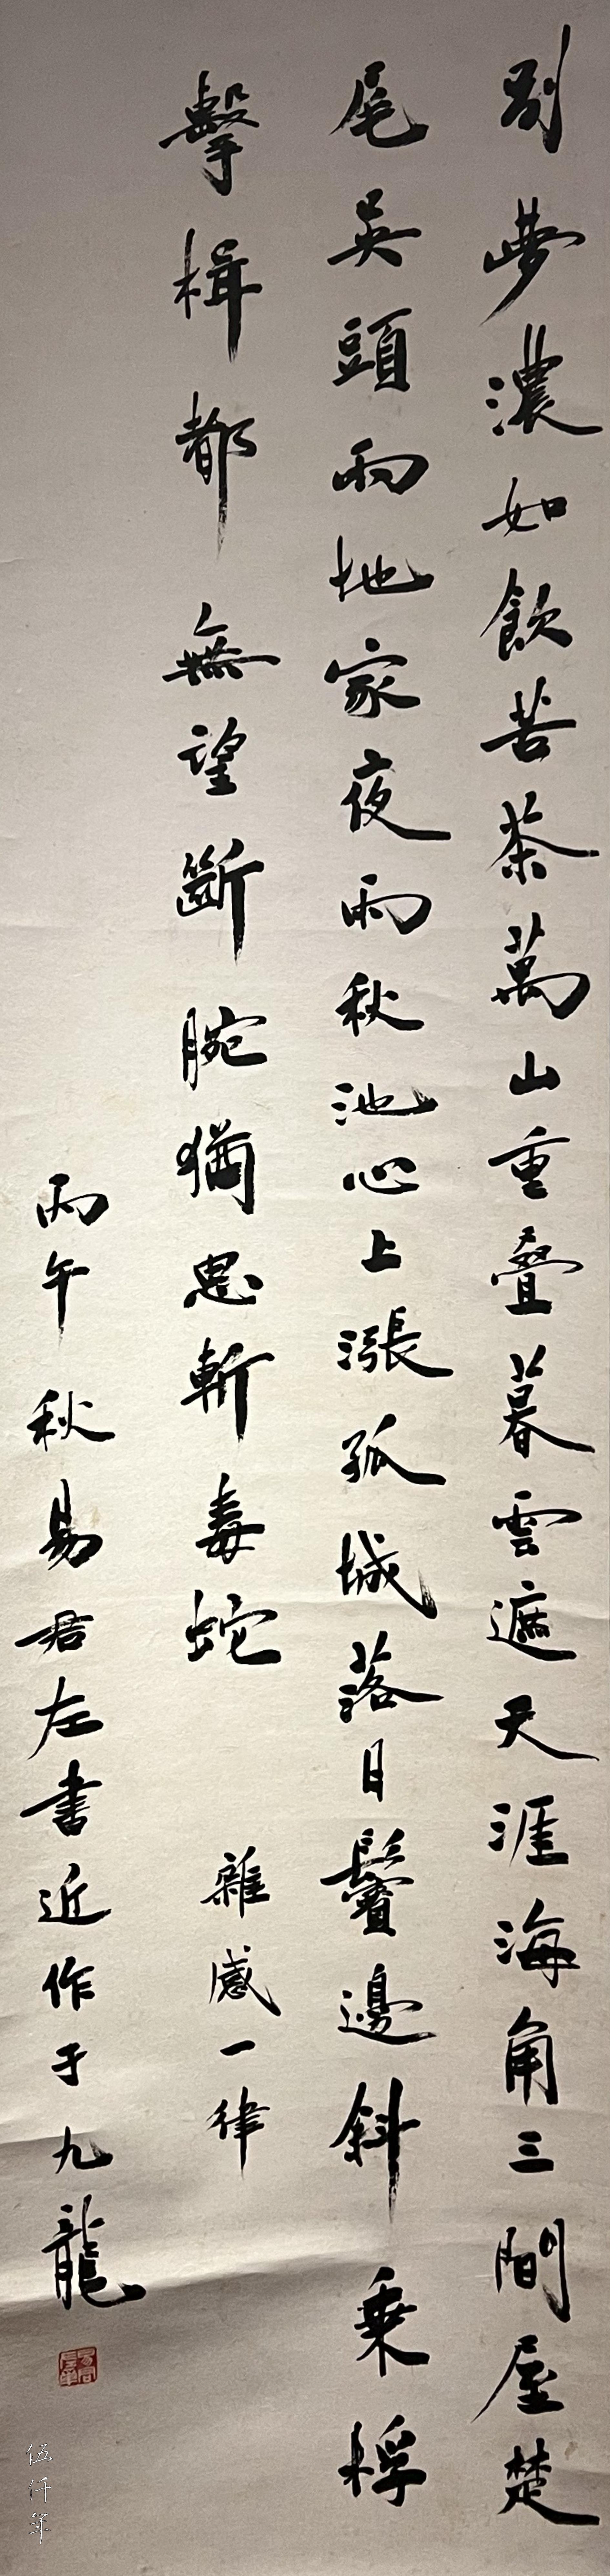 別夢濃如飲苦茶萬山重叠暮雲遮天涯海角三間屋楚
尾吳頭兩地家夜雨秋池心上漲孤城落日鬢邊斜乘桴
擊楫都無望斷腕猶思斬毒蛇
雜感一律
丙午秋易君左書近作于九龍
伍仟年